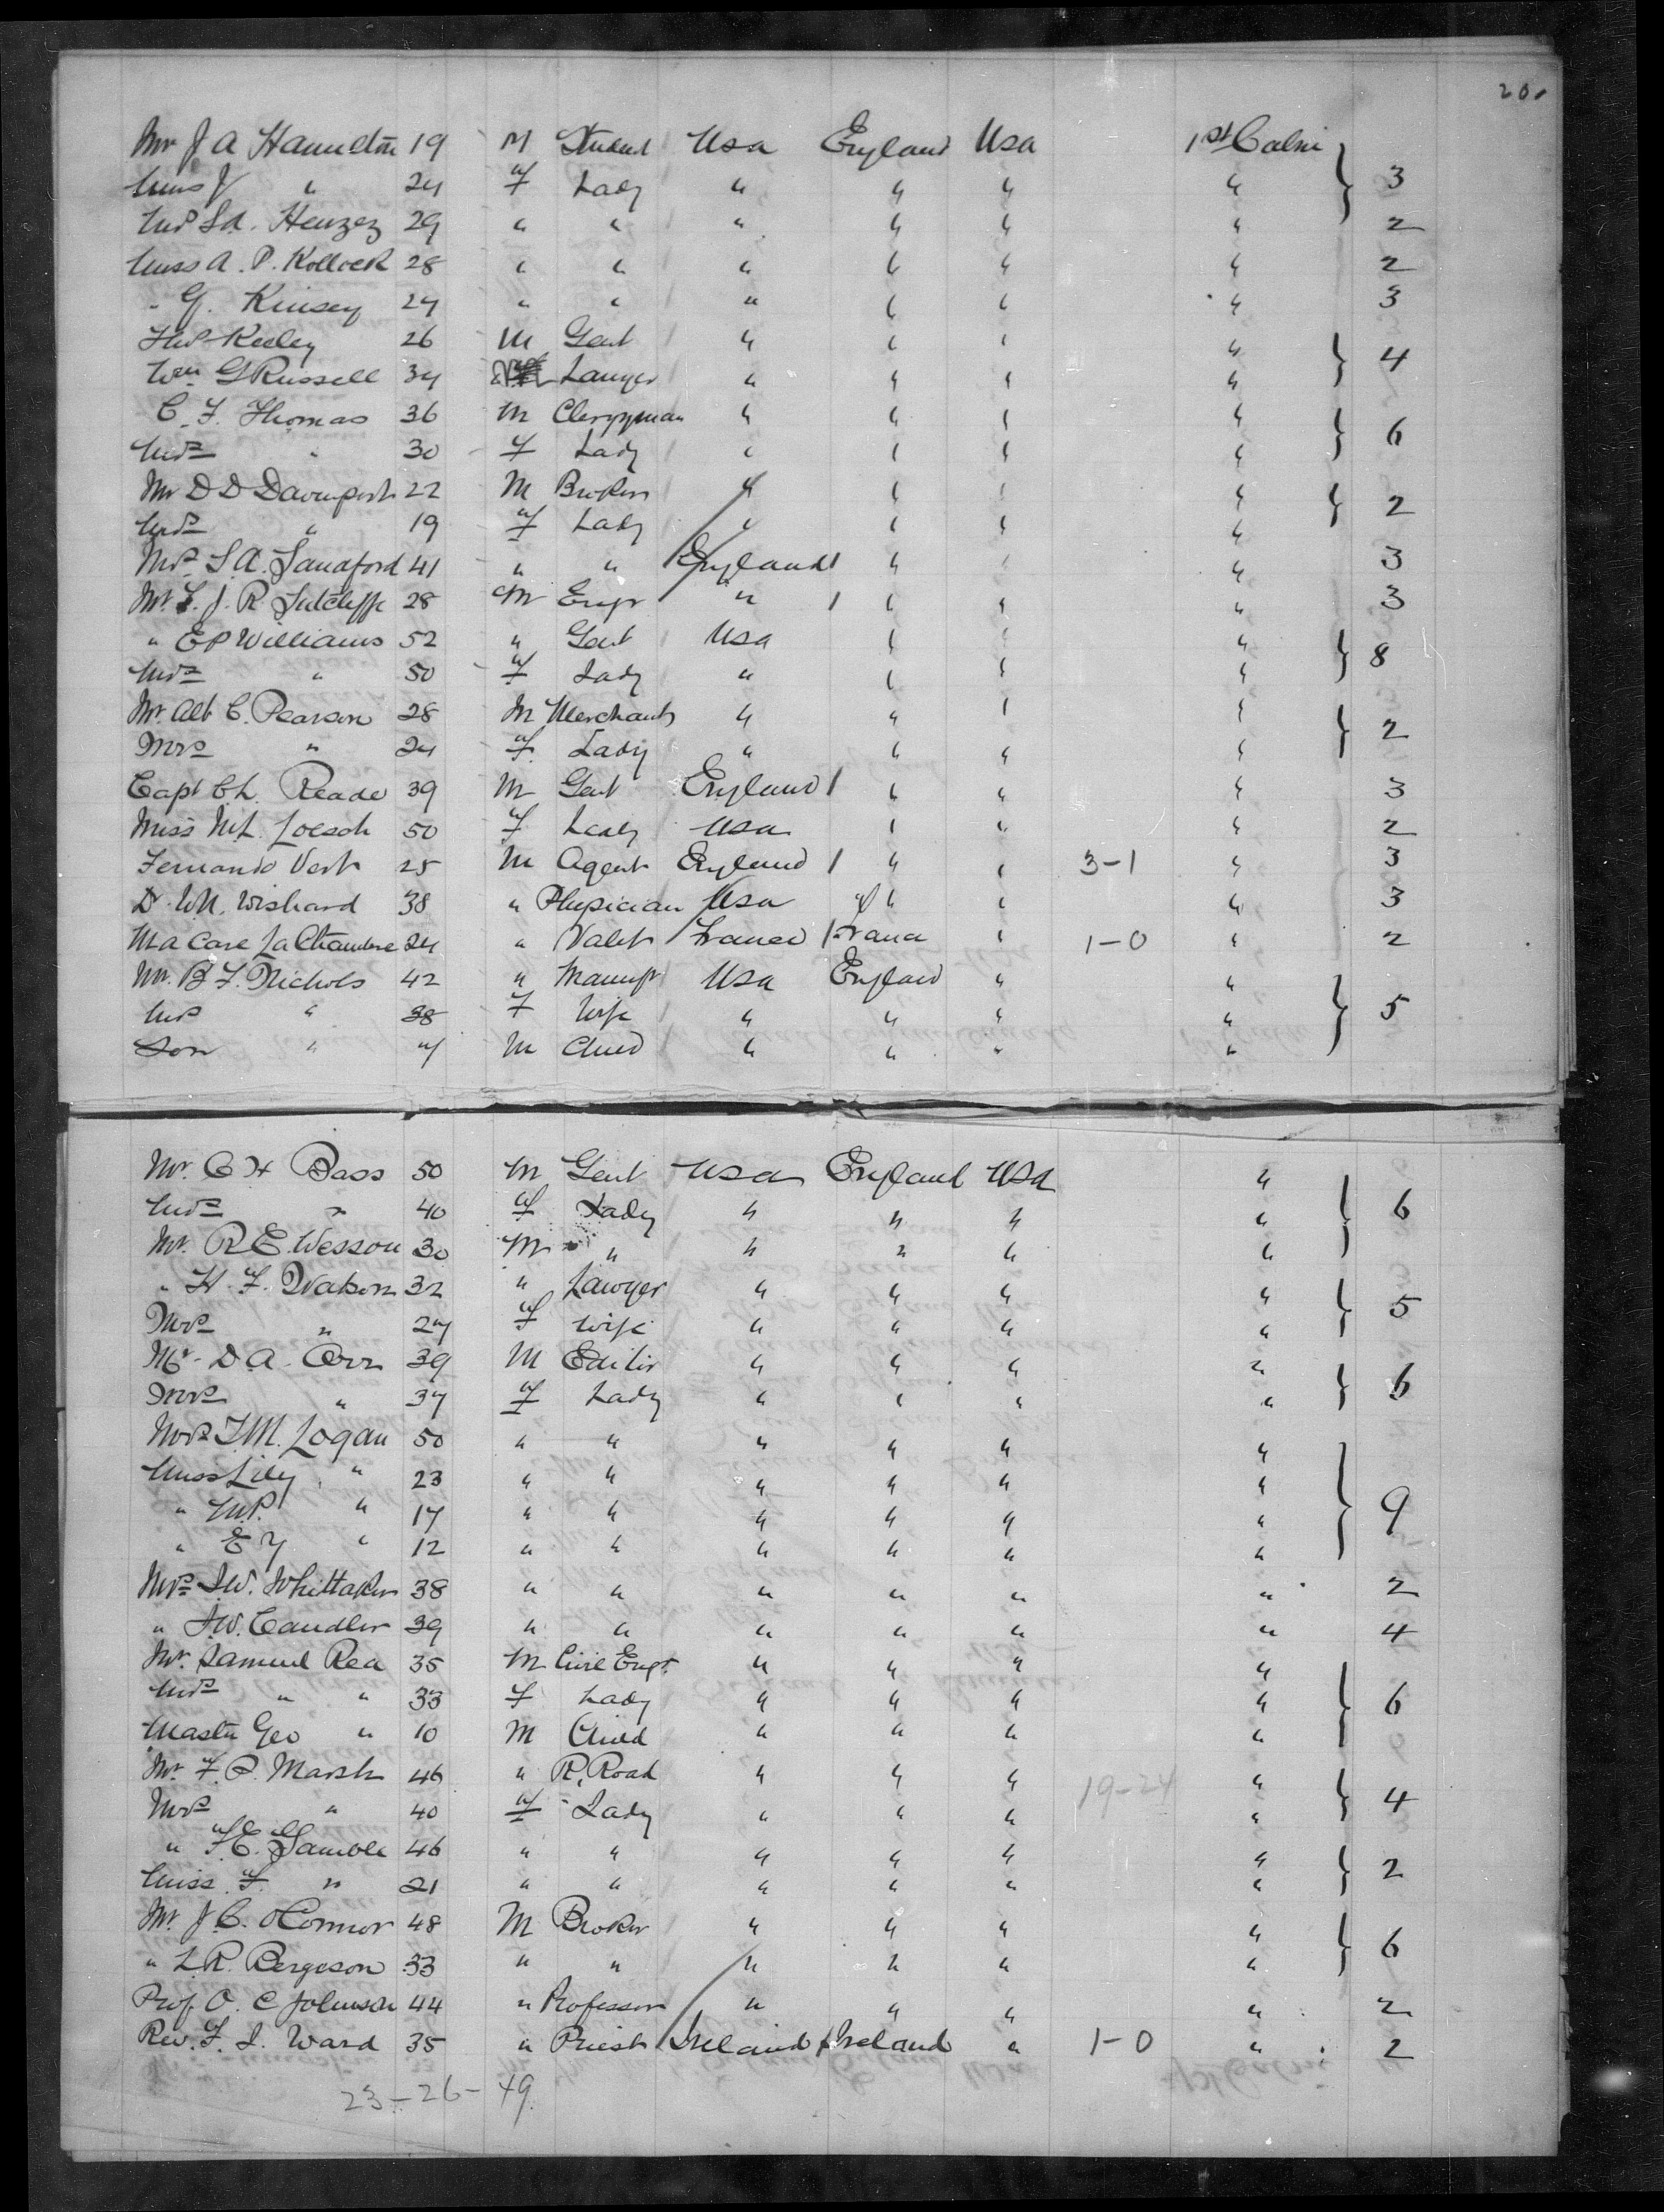 20.
Mr J A Hamilton 19 M Student Usa England Usa 1st Cabin
Miss J " 24 F Lady " " " " } 3
Mrs S A. Henzez 29 " " " " " " 2
Miss A. P. Kollock 28 " " " " " " 2
" G. Kinsey 24 " " " " " " 3
Thos Keeley 26 M Gent " " " "
Wm G Russell 34 Lawyer " " " " } 4
C. F. Thomas 36 M Clergyman " " " "
Mrs " 30 F Lady " " " " } 6
Mr D D Davenport 22 M Broker " " " "
Mrs " 19 F Lady " " " " } 2
Mrs S. A. Sandford 41 " " England 1 " " " 3
Mr. J. R. Sutcliffe 28 M Engr " 1 " " " 3
" E P Williams 52 " Gent Usa " " "
Mrs " 50 F Lady " " " " } 8
Mr. Alb C. Pearson 28 M Merchant " " " "
Mrs " 24 F. Lady " " " " } 2
Capt Ch. Reade 39 M Gent England 1 " " " 3
Miss M L. Loesch 50 F Lady Usa " " " 2
Fernando Vert 25 M Agent England 1 " " 3-1 " 3
Dr. W N. Wishard 38 " Physician Usa " " " 3
La Chambre 24 " Valet France 1 France " 1-0 " 2
Mr. B F. Nichols 42 " Manufr Usa England " "
Mrs " 38 F Wife " " " " } 5
Son " 7 M Child " " " "
Mr. C H Bass 50 M Gent USA England USA "
Mrs " 40 F Lady " " " " } 6
Mr. R E. Wesson 30 M " " " " "
" H. F. Watson 32 " Lawyer " " " "
Mrs " 27 F Wife " " " " } 5
Mr. D. A. Orr 39 M Editor " " " "
Mrs " 37 F Lady " " " " } 6
Mrs T. M. Logan 50 " " " " " "
Miss Lily " 23 " " " " " "
" M. P. " 17 " " " " " " } 9
" E Y " 12 " " " " " "
Mrs J W. Whittaker 38 " " " " " " 2
" J. W. Candler 39 " " " " " " 4
Mr. Samuel Rea 35 M Civil Engr. " " " "
Mrs " " 33 F Lady " " " " } 6
Master Geo " 10 M Child " " " "
Mr. F. P. Marsh 46 " R. Road " " " 19-24 "
Mrs " 40 F Lady " " " " } 4
" F. E. Gamble 46 " " " " " "
Miss F. " 21 " " " " " " } 2
Mr. J C. O'Connor 48 M Broker " " " "
" L. R. Bergeson 33 " " " " " " } 6
Prof. O. C Johnson 44 " Professor " " " " 2
Rev. F. J. Ward 35 " Priest Ireland 1 Ireland " 1-0 " 2
23-26- 49